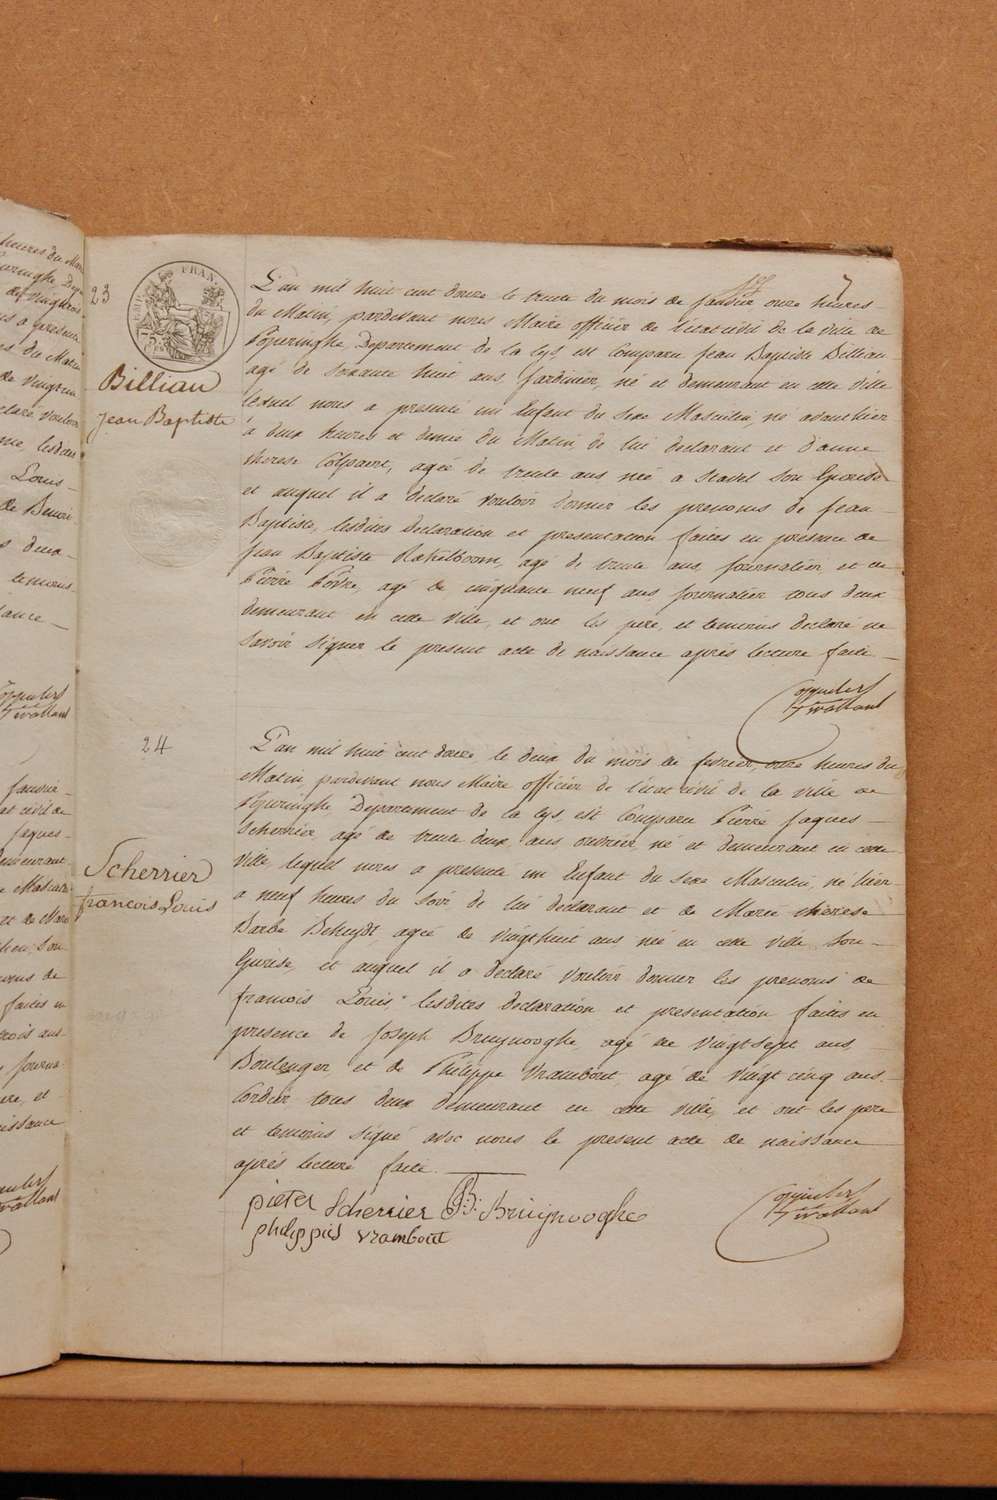 7
23
L'an mil huit cent douze le trente du mois de janvier onze heures
du Matin, pardevant nous Maire officier de l'état civil de la ville de
Poperinghe, Departement de la Lys, est Comparu Jean Baptiste Billiau
agé de soixante huit ans, Jardinier, né et demeurant en cette ville
lequel nous a presenté un Enfant du sexe Masculin, né avanthier
à deux heures et demie du Matin, de lui declarant et d'anne
therese Colpaert, agée de trente ans née a Stavel son Epouse
et auquel il a declaré vouloir donner les prenoms de Jean
Baptiste, lesdites declaration et presentation faites en presence de
Jean Baptiste Rakelboom, agé de trente ans, journalier, et de
Pierre Fevre, agé de cinquante neuf ans, journalier tous deux
demeurant en cette ville, et ont les pere, et temoins declaré ne
savoir signer le present acte de naissance après lecture faite
Billiau
Jean Baptiste
24
L'an mil huit cent douze, le deux du mois de fevrier, onze heures du
Matin pardevant nous Maire officier de l'état civil de la ville de
Poperinghe, Département de la Lys, est Comparu Pierre Jaques
Scherrier, agé de trente deux ans ouvrier, né et demeurant en cette
ville, lequel nous a presenté un Enfant du sexe Masculin, né hier
a neuf heures du soir de lui declarant et de Marie therese
Barbe Dehuydt agée de vingthuit ans née en cette ville son
Epouse, et auquel il a declaré vouloir donner les prenoms de
francois Louis, lesdites declaration et presentation faites en
presence de Joseph Bruynooghe, agé de vingt sept ans,
Boulenger et de Philippe Vrambout, agé de vingt cinq ans
Cordier tous deux demeurant en cette ville, et ont les pere
et temoins signé avec nous le present acte de naissance
après lecture faite.
Scherrier
francois Louis
pieter Scherrier J:B: Bruijnooghe
philippus vrambout